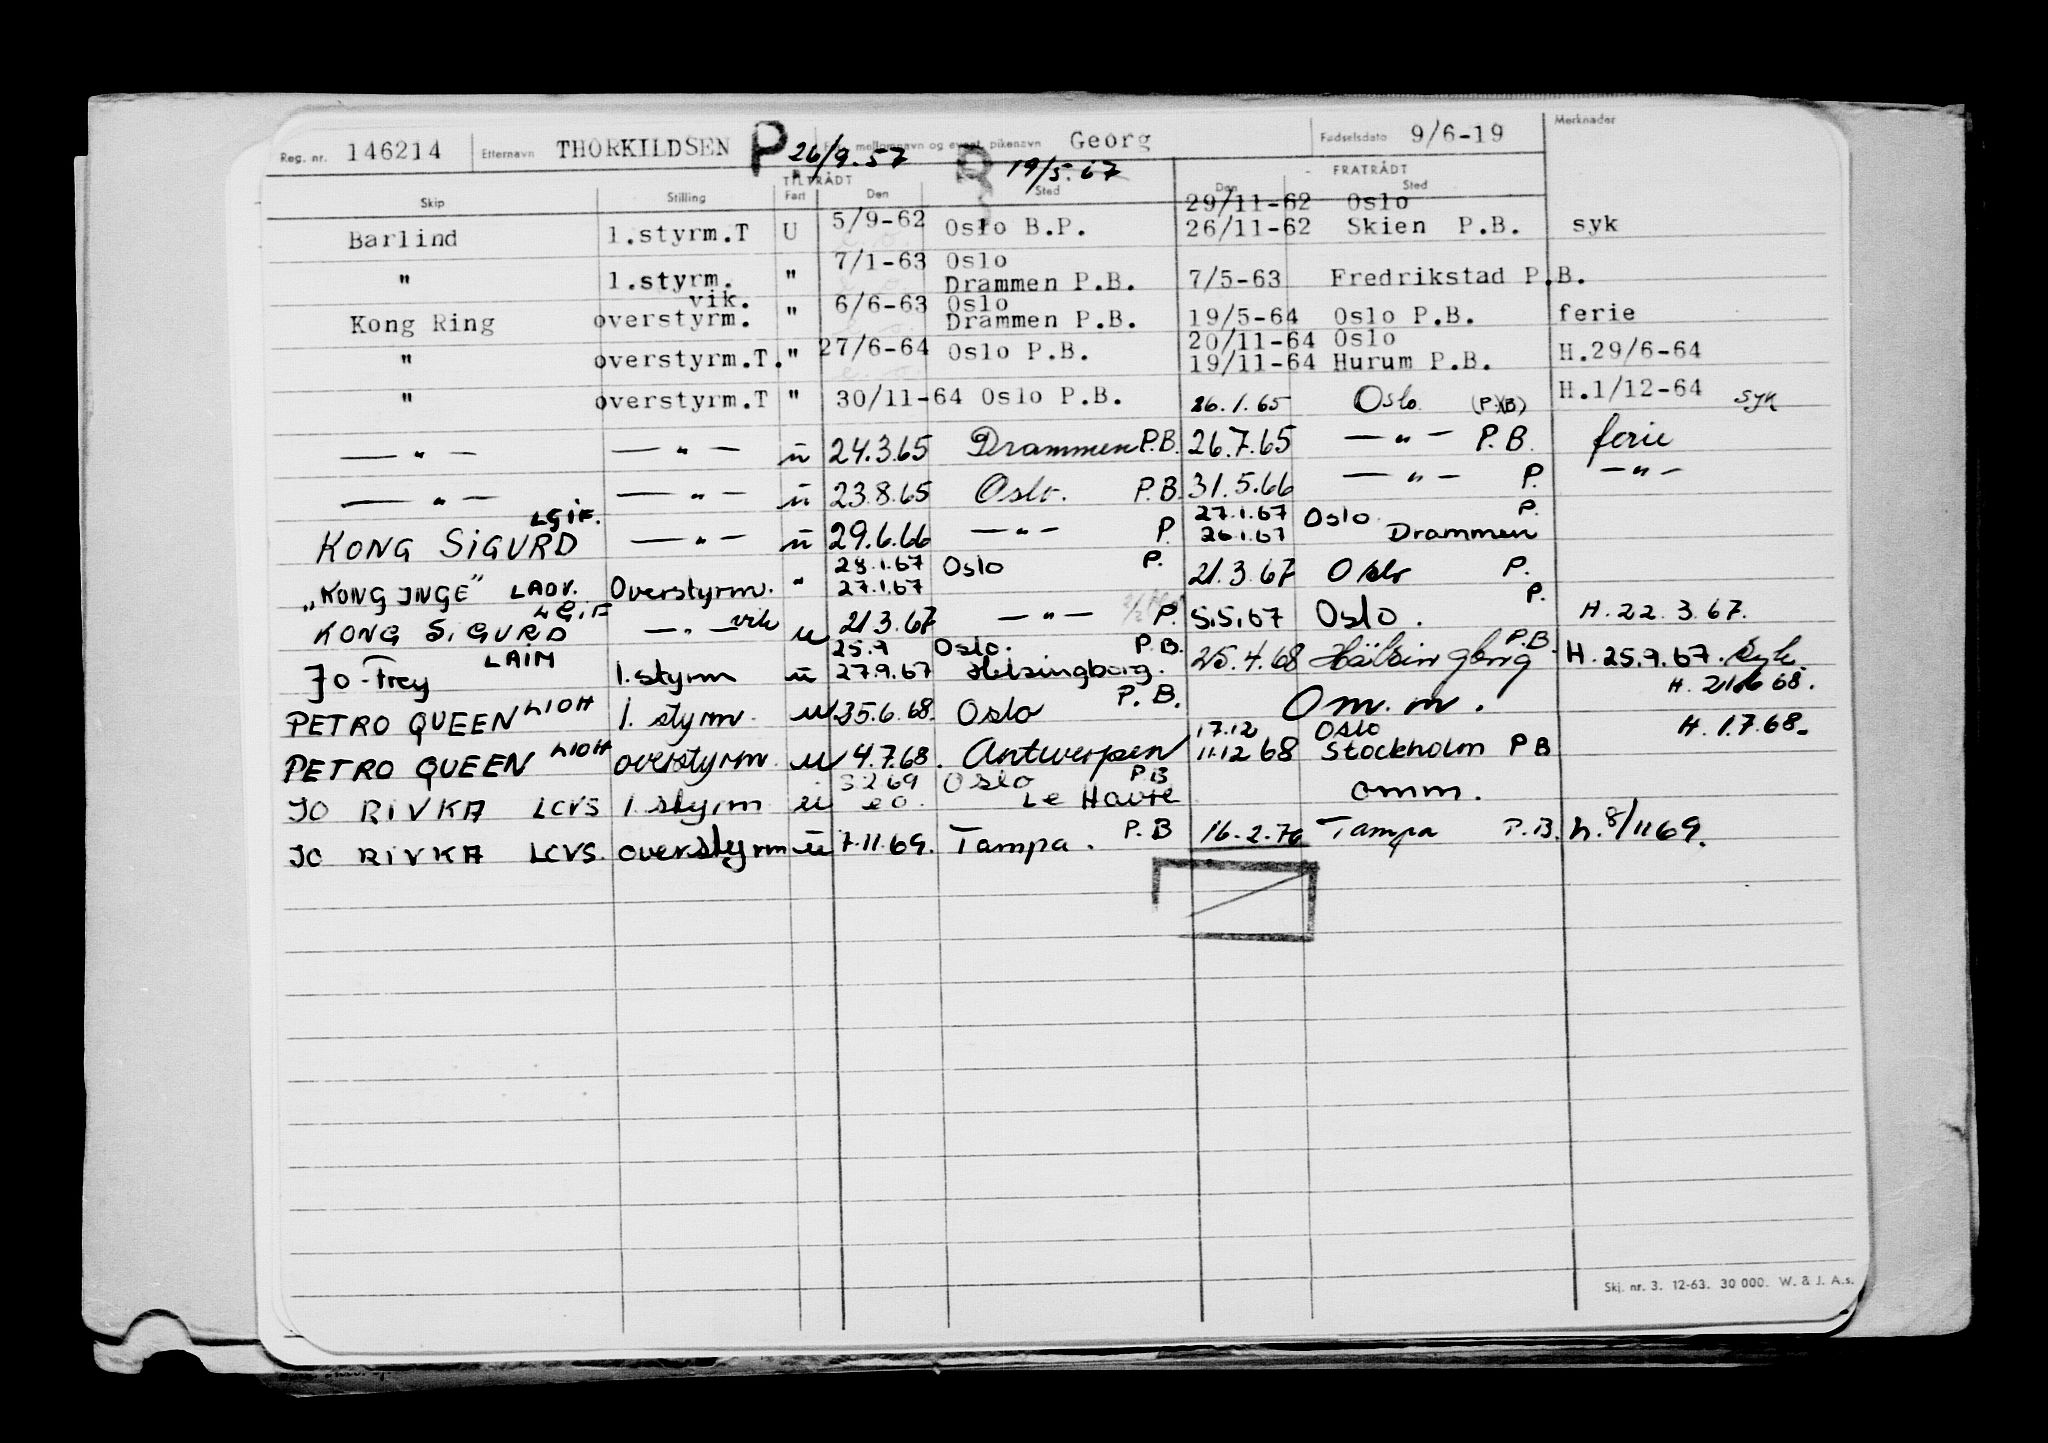 Reg. nr. 146214 Etternavn THORKILDSEN P 26/9.57 mellomnavn og event. pikenavn Georg R 19/5.67 Fødselsdato 9/6-19 Merknader
TILTRÅDT FRATRÅDT
Skip Stilling Fart Den Sted Den Sted
29/11-62 Oslo
Barlind 1.styrm.T U 5/9-62 Oslo B.P. 26/11-62 Skien P.B. syk
7/1-63 Oslo
" 1.styrm. " Drammen P.B. 7/5-63 Fredrikstad P.B.
vik. 6/6-63 Oslo
Kong Ring overstyrm. " Drammen P.B. 19/5-64 Oslo P.B. ferie
20/11-64 Oslo
" overstyrm.T. " 27/6-64 Oslo P.B. 19/11-64 Hurum P.B. H.29/6-64
" overstyrm.T " 30/11-64 Oslo P.B. 26.1.65 Oslo (P.)(B) H.1/12-64 syk
— " — — " — u 24.3.65 Drammen P.B. 26.7.65 — " — P.B. ferie
— " — — " — u 23.8.65 Oslo. P.B. 31.5.66 — " — P. — " —
LGIF. 27.1.67 Oslo P.
KONG SIGURD — " — u 29.6.66 — " — P. 26.1.67 Drammen
28.1.67 Oslo P.
"KONG INGE" LAOV. Overstyrm. " 27.1.67 21.3.67 Oslo P.
LGIF
KONG SIGURD — " — vik u 21.3.67 — " — P. 5.5.67 Oslo. P. H. 22.3.67.
25.9 Oslo. P.B.
Jo-Frey LAIM 1.styrm u 27.9.67 Helsingborg. 25.4.68 Hälsingborg P.B. H. 25.9.67. Syk.
PETRO QUEEN LIOH 1. styrm. u 25.6.68. Oslo P.B. Om.m. H. 21.6 68.
17.12 Oslo
PETRO QUEEN LIOH overstyrm. u 4.7.68. Antwerpen 11.12 68 Stockholm PB H. 1.7.68.
3 2 69 Oslo P.B
JO RIVKA LCVS 1. styrm u e o. Le Havre omm.
JO RIVKA LCVS. overstyrm u 7.11.69. Tampa. P.B 16.2.70 Tampa P.B. h. 8/11 69.
Skj. nr. 3. 12-63. 30 000. W. & J. A.s.